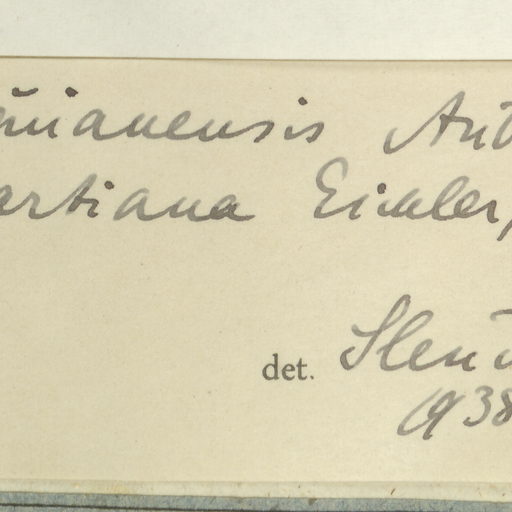 uianensis Aub
artiana Eichler,
det. Sleu
1938